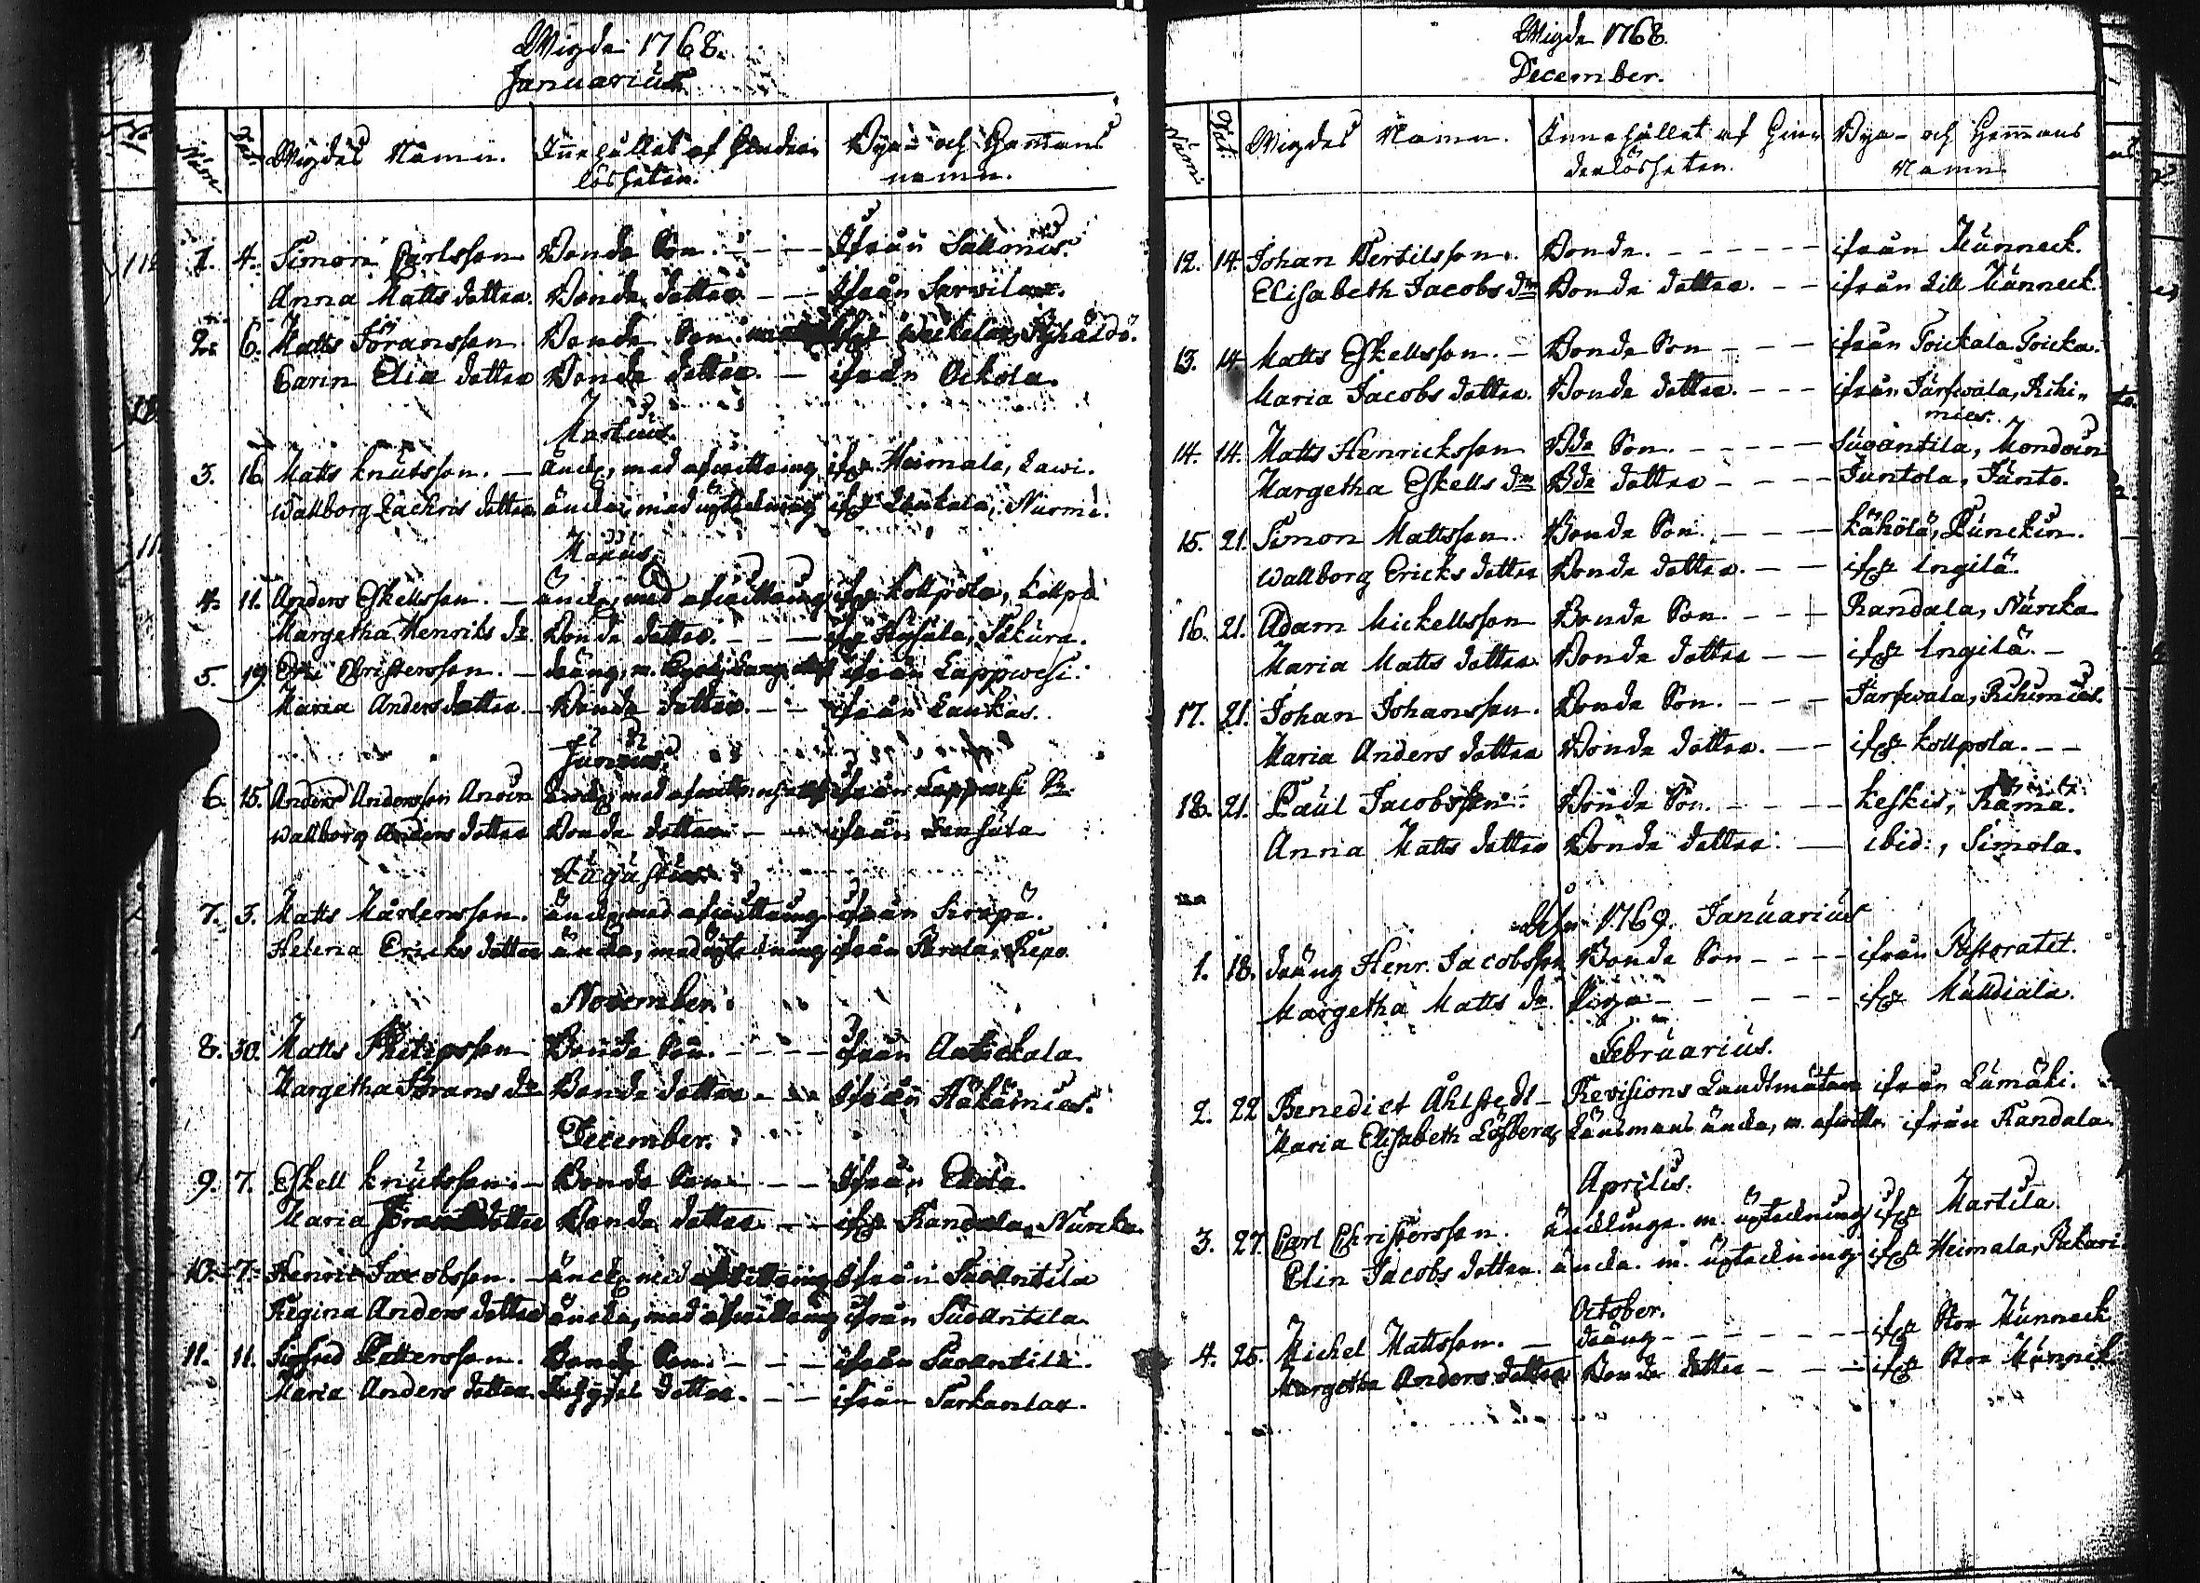 Wigde 1768.
Januarius
Num Dat Wigdes Namn. Innehållet af Hinder- Bya- och Hemans
lösheten. namn.
1. 4. Simon Carlsson Bonde Son - - - Ifrån Sallonis.
Anna Matts dotter. Bonde dotter - - Ifrån Sarvilax.
2. 6. Matts Jöransson Bonde Son
Carin Elia dotter Bonde dotter. - ifrån Ockola.
Martius.
3. 16. Matts Knutsson. - änck, med afwittring ifr Heimala, Lawi.
Wallborg Zachris dotter äncka, med upteckning ifr Nurmi.
Majus.
4. 11. Anders Eskellsson. - änck, med afwittring ifr Kollpola, Kollpo
Margetha Henriks dr Bonde dotter. - - - ifr Hysula, Sakura.
5. 19. Christersson. - dräng, m. ifrån Lappwesi.
Maria Anders dotter. - Bonde dotter. - - ifrån Laukas.
Junius.
6. 15. Anders Andersson ifrån Lappwesi
Wallborg Anders dotter Bonde dotter - - ifrån
Augustus.
7. 3. Matts Mårtensson. änck, med afwittring ifrån
Helena Ericks dotter änka, med upteckning ifrån Perola, Repo
November.
8. 30. Matts Philipsson Bonde Son. - - - - ifrån
Margetha Jörans dr Bonde dotter - - - Ifrån Häkämies.
December.
9. 7. Eskell Knutsson. - Bonde Son - - - Ifrån
Maria Jörans dotter Bonde dotter - - ifr Kandala, Nurcka
10. 7. Henric Jacobsson. - änck, med afwittring Ifrån Suoantila
Regina Anders dotter äncka, med afwittring ifrån Suoantila
11. 11. Sigfred Pettersson. Bonde Son. - - - ifrån Suoantila.
Maria Anders dotter. Inhyses dotter. - - ifrån Sarkanlax.
Wigde 1768.
December.
Num: Dat: Wigdes Namn. Innehållet af Hin- Bya- och Hemans
derlösheten. Namn.
12. 14. Johan Bertilsson. Bonde. - - - - - ifrån Männeck.
Elisabeth Jacobs dr Bonde dotter. - - ifrån Lill Männeck.
13. 14. Matts Eskellsson. - Bonde Son - - - ifrån Toickala Toicka.
Maria Jacobs dotter. Bonde dotter. - - - ifrån Järfwala, Rihi-
mies.
14. 14. Matts Henricksson Bde Son. - - - - Suoantila, Mondoin
Margetha Eskells dr Bde dotter - - - - Juntola, Junto.
15. 21. Simon Mattsson. Bonde Son. - - - Kähölä, Punckin.
Wallborg Ericks dotter Bonde dotter. - - ifr Ingilä.
16. 21. Adam Mickellsson Bonde Son. - - - Kandala, Nurcka
Maria Matts dotter Bonde dotter - - ifr Ingilä. -
17. 21. Johan Johansson. Bonde Son. - - - Järfwala, Rihimies.
Maria Anders dotter Bonde dotter. - - ifr Kollpola. - -
18. 21. Paul Jacobsson. Bonde Son. - - - - Keskis, Rämä.
Anna Matts dotter Bonde dotter. - ibid:, Simola.
1769. Januarius
1. 18. dräng Henr. Jacobsson Bonde Son - - - - ifrån Pastoratet.
Margetha Matts dr Piga - - - - - ifr Mulldiala.
Februarius.
2. 22 Benedict Åhlstedt - Revisions Landtmätare ifrån Lumäki.
Maria Elisabeth Löfberg, Länsmans äncka, m. afwittr. ifrån Kandala.
Aprilis.
3. 27. Carl Christersson. äncklinge. m. upteckning ifr Martila
Elin Jacobs dotter. äncka. m. upteckning ifr Heimala, Pekari
October.
4. 25. Michel Mattsson. - dräng - - - - - - ifr Stor Männeck
Margetha Anders dotter Bonde dotter - - - ifr Stor Männeck